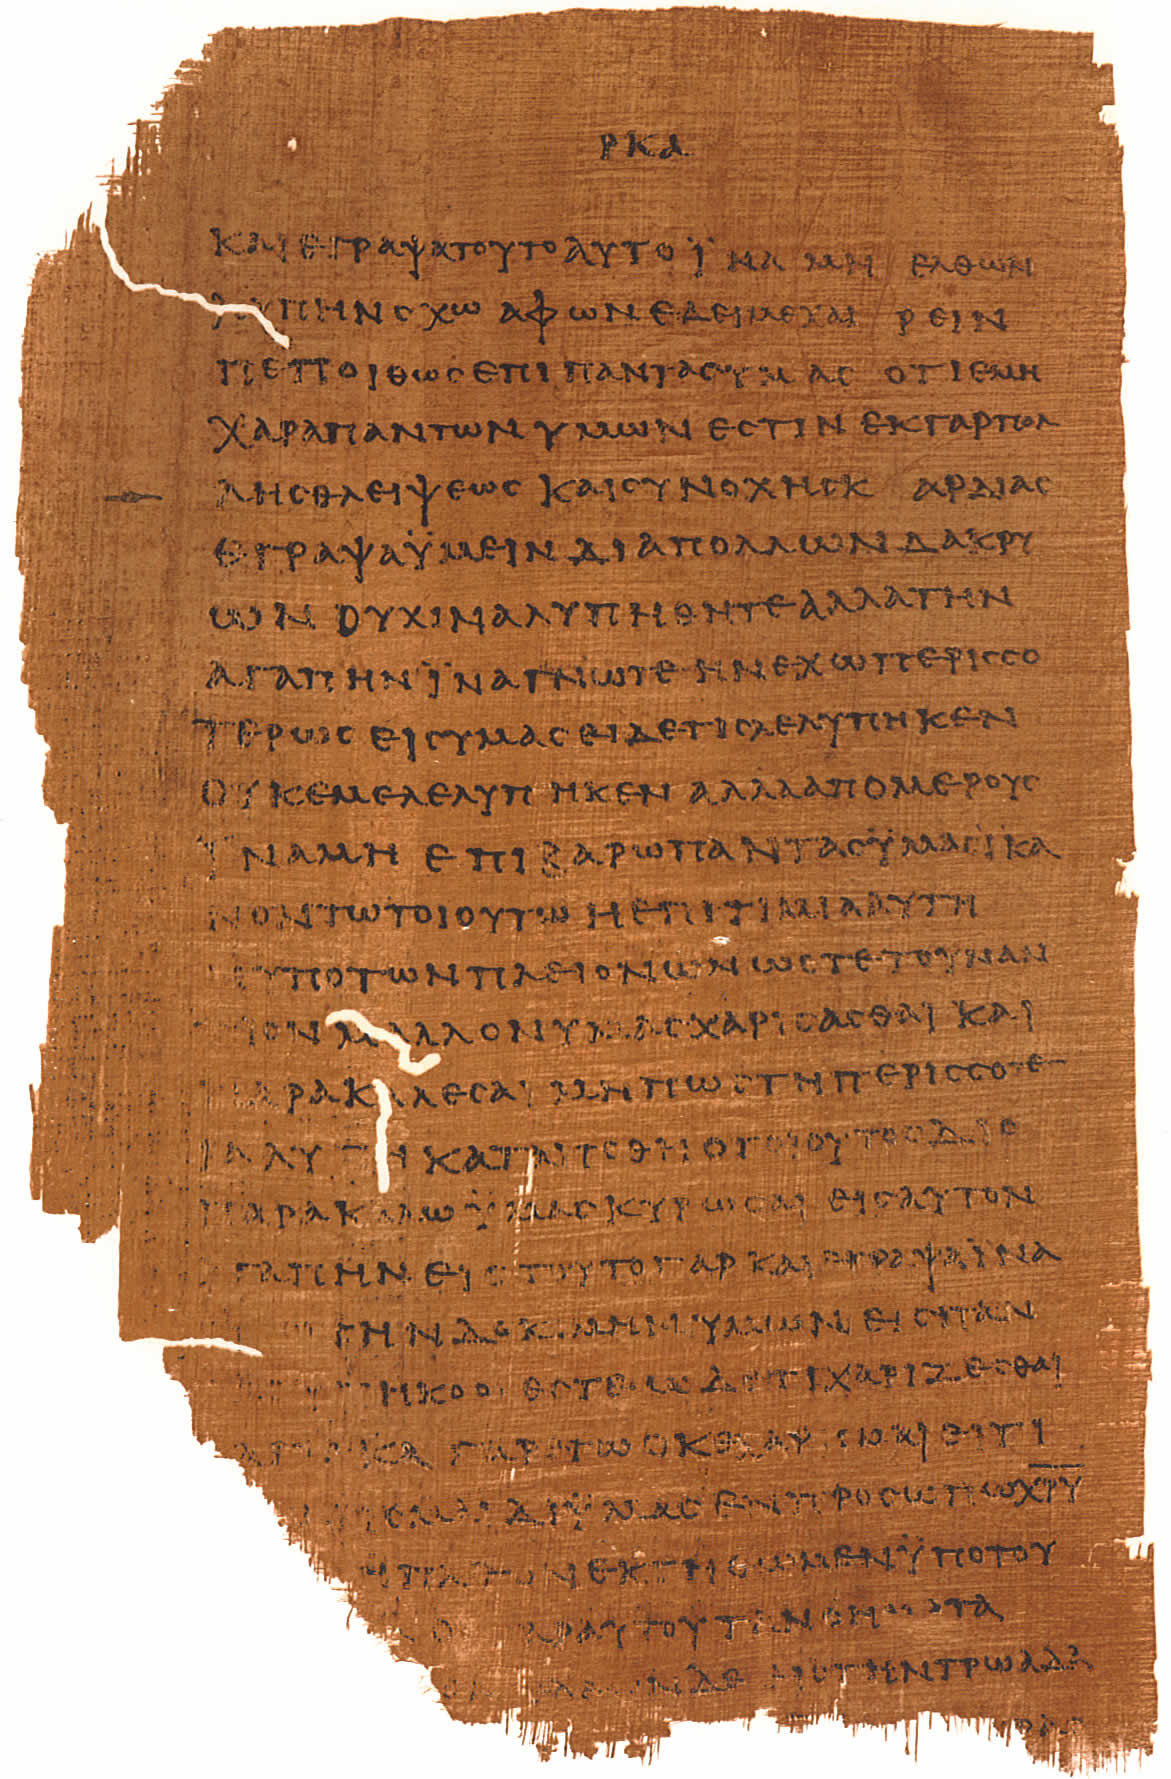 ΡΚΑ
ΚΑΙ ΕΓΡΑΨΑ ΤΟΥΤΟ ΑΥΤΟ ΪΝΑ ΜΗ ΕΛΘΩΝ
ΛΥΠΗΝ ΣΧΩ ΑΦ ΩΝ ΕΔΕΙ ΜΕ ΧΑΙΡΕΙΝ
ΠΕΠΟΙΘΩΣ ΕΠΙ ΠΑΝΤΑΣ ΥΜΑΣ ΟΤΙ Η ΕΜΗ
ΧΑΡΑ ΠΑΝΤΩΝ ΥΜΩΝ ΕΣΤΙΝ ΕΚ ΓΑΡ ΠΟΛ
ΛΗΣ ΘΛΕΙΨΕΩΣ ΚΑΙ ΣΥΝΟΧΗΣ ΚΑΡΔΙΑΣ
ΕΓΡΑΨΑ ΫΜΕΙΝ ΔΙΑ ΠΟΛΛΩΝ ΔΑΚΡΥ
ΩΝ ΟΥΧ ΙΝΑ ΛΥΠΗΘΗΤΕ ΑΛΛΑ ΤΗΝ
ΑΓΑΠΗΝ ΪΝΑ ΓΝΩΤΕ ΗΝ ΕΧΩ ΠΕΡΙΣΣΟ
ΤΕΡΩΣ ΕΙΣ ΥΜΑΣ ΕΙ ΔΕ ΤΙΣ ΛΕΛΥΠΗΚΕΝ
ΟΥΚ ΕΜΕ ΛΕΛΥΠΗΚΕΝ ΑΛΛΑ ΑΠΟ ΜΕΡΟΥΣ
ΪΝΑ ΜΗ ΕΠΙΒΑΡΩ ΠΑΝΤΑΣ ΫΜΑΣ ΪΚΑ
ΝΟΝ ΤΩ ΤΟΙΟΥΤΩ Η ΕΠΙΤΙΜΙΑ ΑΥΤΗ
ΥΠΟ ΤΩΝ ΠΛΕΙΟΝΩΝ ΩΣΤΕ ΤΟΥΝΑΝ
ΤΙΟΝ ΜΑΛΛΟΝ ΥΜΑΣ ΧΑΡΙΣΑΣΘΑΙ ΚΑΙ
ΠΑΡΑΚΑΛΕΣΑΙ ΜΗ ΠΩΣ ΤΗ ΠΕΡΙΣΣΟΤΕ
ΡΑ ΛΥΠΗ ΚΑΤΑΠΟΘΗ Ο ΤΟΙΟΥΤΟΣ ΔΙΟ
ΠΑΡΑΚΑΛΩ ΫΜΑΣ ΚΥΡΩΣΑΙ ΕΙΣ ΑΥΤΟΝ
ΓΑΠΗΝ ΕΙΣ ΤΟΥΤΟ ΓΑΡ ΚΑΙ ΕΓΡΑΨΑ ΪΝΑ
ΤΗΝ ΔΟΚΙΜΗΝ ΥΜΩΝ ΕΙ ΕΙΣ ΠΑΝ
ΗΚΟΟΙ ΕΣΤΕ Ω ΔΕ ΤΙ ΧΑΡΙΖΕΣΘΑΙ
ΚΑΙ ΕΙ ΤΙ
ΔΙ ΫΜΑΣ ΕΝ ΠΡΟΣΩΠΩ ΧΡΥ
ΠΛΕΟΝΕΚΤΗΘΩΜΕΝ ΫΠΟ ΤΟΥ
ΑΥΤΟΥ ΤΑ ΝΟΗΜΑΤΑ
ΔΕ ΕΙΣ ΤΗΝ ΤΡΩΑΔΑ